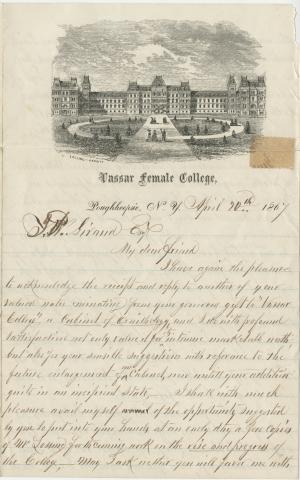 Vassar Female College,
Poughkeepsie, N.Y. April 20th 1867
J.P. Giraud Esq
My dear friend
I have again the pleasure
to acknowledge the receipt and reply to another of your
valued notes eminating from your generous gift to "Vassar
College" a Cabinet of Ornithology, and I do with profound
satisfaction not only value it for its intrinsic marketable worth,
but also for your sensible suggestions into reference to the
further enlargement of a Cabinet, now untill your addition
quite in an incipient state, I shall with much
pleasure avail myself of the opportunity suggested
by you to put into your hands at an early day a few copies
of Mr Lossing forthcoming work on the rise and progress of
the College, May I ask wether you will favor me with